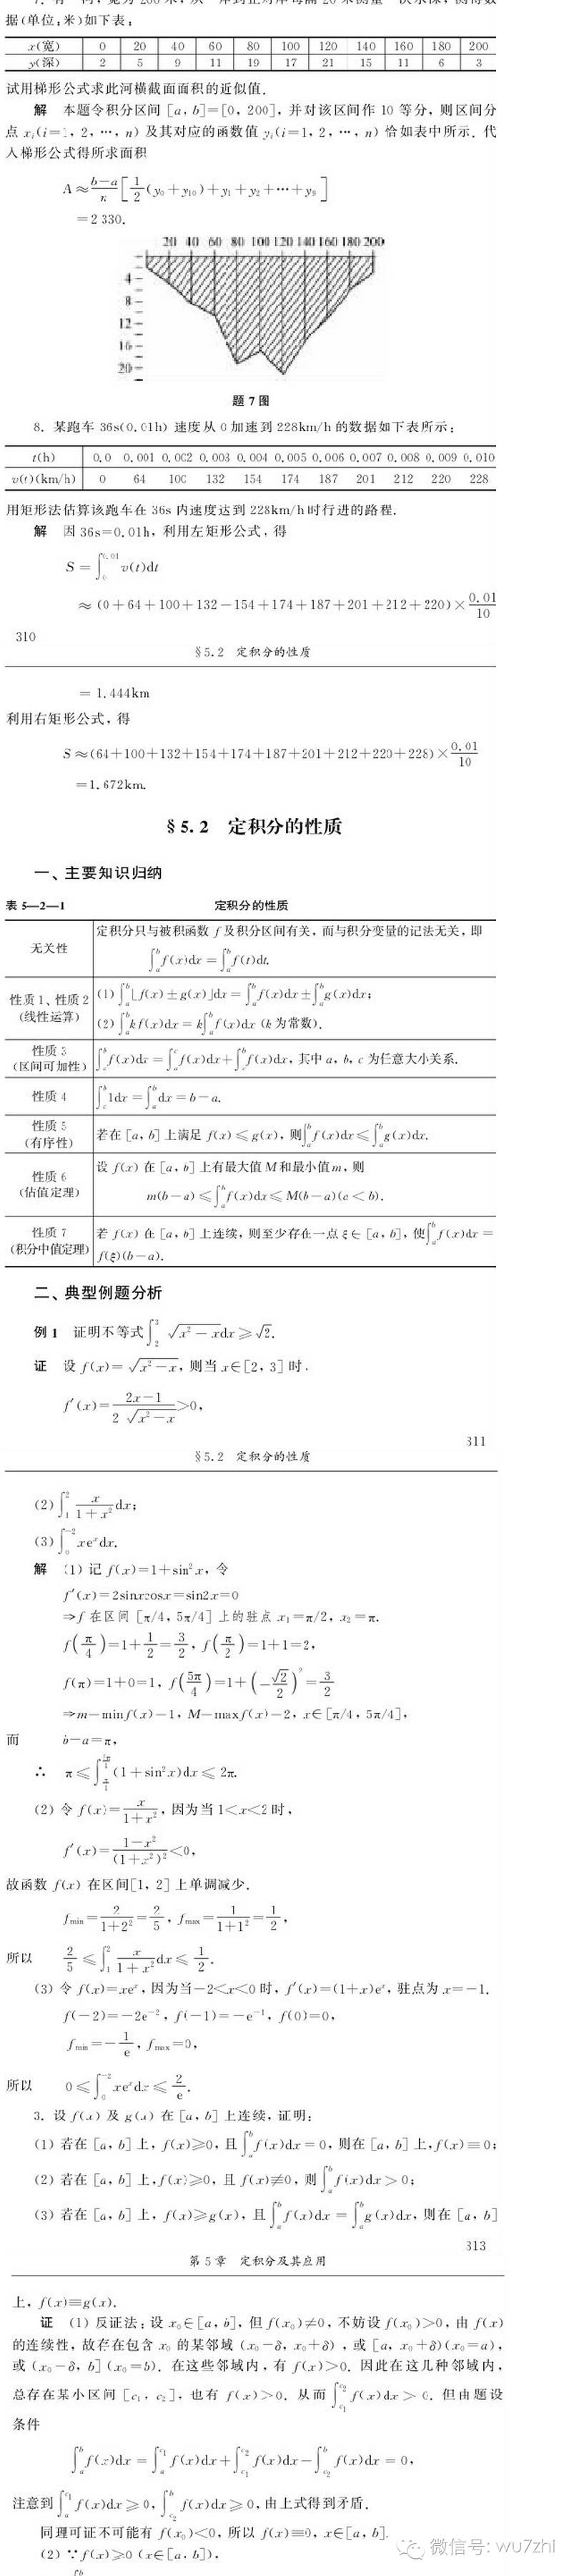 据(单位:米)如下表:
x(宽) 0 20 40 60 80 100 120 140 160 180 200
y(深) 2 5 9 11 19 17 21 15 11 6 3
试用梯形公式求此河横截面面积的近似值.
解 本题令积分区间[a,b]=[0,200],并对该区间作10等分,则区间分
点 xᵢ(i=1,2,…,n)及其对应的函数值 yᵢ(i=1,2,…,n)恰如表中所示.代
入梯形公式得所求面积
A≈(b−a)/n[1/2(y₀+y₁₀)+y₁+y₂+…+y₉]
=2 330.
20 40 60 80 100 120 140 160 180 200
4
8
12
16
20
题7图
8. 某跑车36s(0.01h)速度从0加速到228km/h的数据如下表所示:
t(h) 0.0 0.001 0.002 0.003 0.004 0.005 0.006 0.007 0.008 0.009 0.010
v(t)(km/h) 0 64 100 132 154 174 187 201 212 220 228
用矩形法估算该跑车在36s内速度达到228km/h时行进的路程.
解 因36s=0.01h,利用左矩形公式,得
S=∫₀^0.01 v(t)dt
≈(0+64+100+132−154+174+187+201+212+220)×0.01/10
310
§5.2 定积分的性质
=1.444km
利用右矩形公式,得
S≈(64+100+132+154+174+187+201+212+220+228)×0.01/10
=1.672km.
§5.2 定积分的性质
一、主要知识归纳
表5—2—1 定积分的性质
无关性 定积分只与被积函数 f 及积分区间有关,而与积分变量的记法无关,即
∫ₐᵇf(x)dx=∫ₐᵇf(t)dt.
性质1、性质2
(线性运算)
(1)∫ₐᵇ[f(x)±g(x)]dx=∫ₐᵇf(x)dx±∫ₐᵇg(x)dx;
(2)∫ₐᵇkf(x)dx=k∫ₐᵇf(x)dx (k为常数).
性质3
(区间可加性)
∫ₐᵇf(x)dx=∫ₐᶜf(x)dx+∫꜀ᵇf(x)dx,其中a,b,c为任意大小关系.
性质4 ∫ₐᵇ1dx=∫ₐᵇdx=b−a.
性质5
(有序性)
若在[a,b]上满足 f(x)≤g(x),则∫ₐᵇf(x)dx≤∫ₐᵇg(x)dx.
性质6
(估值定理)
设 f(x)在[a,b]上有最大值M和最小值m,则
m(b−a)≤∫ₐᵇf(x)dx≤M(b−a)(a<b).
性质7
(积分中值定理)
若 f(x)在[a,b]上连续,则至少存在一点ξ∈[a,b],使∫ₐᵇf(x)dx=
f(ξ)(b−a).
二、典型例题分析
例1 证明不等式∫₂³√(x²−x)dx≥√2.
证 设 f(x)=√(x²−x),则当x∈[2,3]时,
f′(x)=(2x−1)/(2√(x²−x))>0,
311
§5.2 定积分的性质
(2)∫₁² x/(1+x²)dx;
(3)∫₀⁻²xeˣdx.
解 (1)记 f(x)=1+sin²x,令
f′(x)=2sinxcosx=sin2x=0
⇒f 在区间[π/4,5π/4]上的驻点 x₁=π/2,x₂=π.
f(π/4)=1+1/2=3/2,f(π/2)=1+1=2,
f(π)=1+0=1,f(5π/4)=1+(−√2/2)²=3/2
⇒m−minf(x)−1,M−maxf(x)−2,x∈[π/4,5π/4],
而 b−a=π,
∴ π≤∫(1+sin²x)dx≤2π.
(2)令 f(x)=x/(1+x²),因为当1<x<2时,
f′(x)=(1−x²)/(1+x²)²<0,
故函数 f(x)在区间[1,2]上单调减少.
f_min=2/(1+2²)=2/5,f_max=1/(1+1²)=1/2,
所以 2/5≤∫₁² x/(1+x²)dx≤1/2.
(3)令 f(x)=xeˣ,因为当−2<x<0时,f′(x)=(1+x)eˣ,驻点为x=−1.
f(−2)=−2e⁻²,f(−1)=−e⁻¹,f(0)=0,
f_min=−1/e,f_max=0,
所以 0≤∫₀⁻²xeˣdx≤2/e.
3. 设 f(x)及g(x)在[a,b]上连续,证明:
(1)若在[a,b]上,f(x)≥0,且∫ₐᵇf(x)dx=0,则在[a,b]上,f(x)≡0;
(2)若在[a,b]上,f(x)≥0,且 f(x)≢0,则∫ₐᵇf(x)dx>0;
(3)若在[a,b]上,f(x)≥g(x),且∫ₐᵇf(x)dx=∫ₐᵇg(x)dx,则在[a,b]
313
第5章 定积分及其应用
上,f(x)≡g(x).
证 (1)反证法:设 x₀∈[a,b],但 f(x₀)≠0,不妨设 f(x₀)>0,由 f(x)
的连续性,故存在包含 x₀ 的某邻域(x₀−δ,x₀+δ),或[a,x₀+δ)(x₀=a),
或(x₀−δ,b](x₀=b).在这些邻域内,有 f(x)>0.因此在这几种邻域内,
总存在某小区间[c₁,c₂],也有 f(x)>0.从而∫_{c₁}^{c₂}f(x)dx>0.但由题设
条件
∫ₐᵇf(x)dx=∫ₐ^{c₁}f(x)dx+∫_{c₁}^{c₂}f(x)dx−∫_{c₂}^b f(x)dx=0,
注意到∫ₐ^{c₁}f(x)dx≥0,∫_{c₂}^b f(x)dx≥0,由上式得到矛盾.
同理可证不可能有 f(x₀)<0,所以 f(x)≡0,x∈[a,b].
(2)∵f(x)≥0(x∈[a,b]),
微信号: wu7zhi